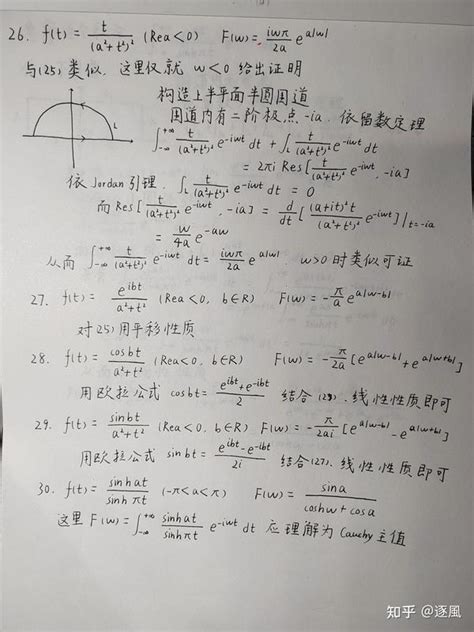 26. f(t) = t/(a²+t²)² (Rea<0) F(w) = iwπ/2a e^{a|w|}
与(25)类似. 这里仅就 w<0 给出证明
构造上半平面半圆周道
周道内有二阶极点 -ia. 依留数定理
∫_{-∞}^{+∞} t/(a²+t²)² e^{-iwt} dt + ∫_L t/(a²+t²)² e^{-iwt} dt
= 2πi Res[t/(a²+t²)² e^{-iwt}, -ia]
依 Jordan 引理, ∫_L t/(a²+t²)² e^{-iwt} dt = 0
而 Res[t/(a²+t²)² e^{-iwt}, -ia] = d/dt [(a+it)²t/(a²+t²)² e^{-iwt}]|_{t=-ia}
= w/4a e^{-aw}
从而 ∫_{-∞}^{+∞} t/(a²+t²)² e^{-iwt} dt = iwπ/2a e^{a|w|} w>0时类似可证
27. f(t) = e^{ibt}/(a²+t²) (Rea<0, b∈R) F(w) = -π/a e^{a|w-b|}
对(25)用平移性质
28. f(t) = cosbt/(a²+t²) (Rea<0, b∈R) F(w) = -π/2a [e^{a|w-b|}+e^{a|w+b|}]
用欧拉公式 cosbt = (e^{ibt}+e^{-ibt})/2 结合(29). 线性性质即可
29. f(t) = sinbt/(a²+t²) (Rea<0, b∈R) F(w) = -π/2ai [e^{a|w-b|}-e^{a|w+b|}]
用欧拉公式 sinbt = (e^{ibt}-e^{-ibt})/2i 结合(27). 线性性质即可
30. f(t) = sinhat/sinhπt (-π<a<π) F(w) = sina/(coshw+cosa)
这里 F(w) = ∫_{-∞}^{+∞} sinhat/sinhπt e^{-iwt} dt 应理解为 Cauchy 主值
知乎 @逐風